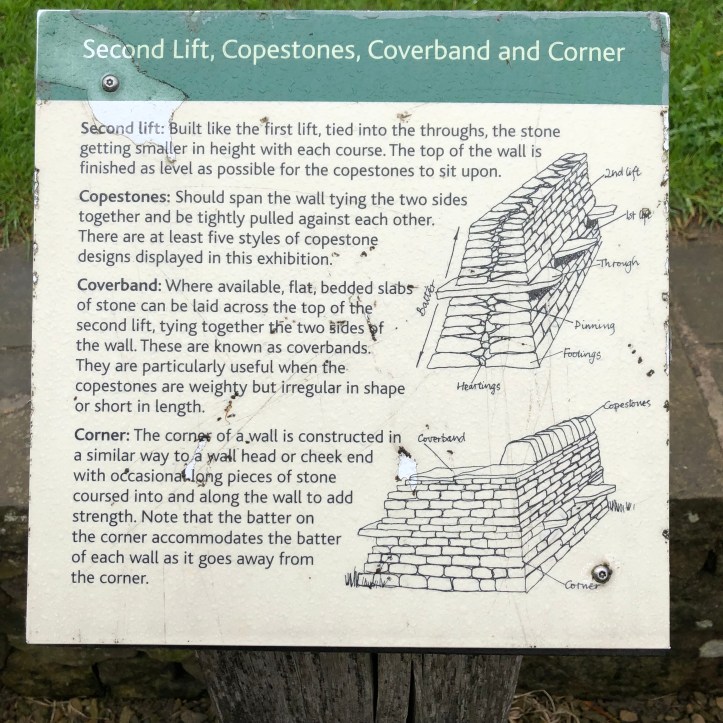 Second Lift, Copestones, Coverband and Corner
Second lift: Built like the first lift, tied into the throughs, the stone
getting smaller in height with each course. The top of the wall is
finished as level as possible for the copestones to sit upon.
Copestones: Should span the wall tying the two sides
together and be tightly pulled against each other.
There are at least five styles of copestone
designs displayed in this exhibition.
Coverband: Where available, flat, bedded slabs
of stone can be laid across the top of the
second lift, tying together the two sides of
the wall. These are known as coverbands.
They are particularly useful when the
copestones are weighty but irregular in shape
or short in length.
Corner: The corner of a wall is constructed in
a similar way to a wall head or cheek end
with occasional long pieces of stone
coursed into and along the wall to add
strength. Note that the batter on
the corner accommodates the batter
of each wall as it goes away from
the corner.
2nd lift
1st lift
Through
Batter
Pinning
Footings
Heartings
Copestones
Coverband
Corner